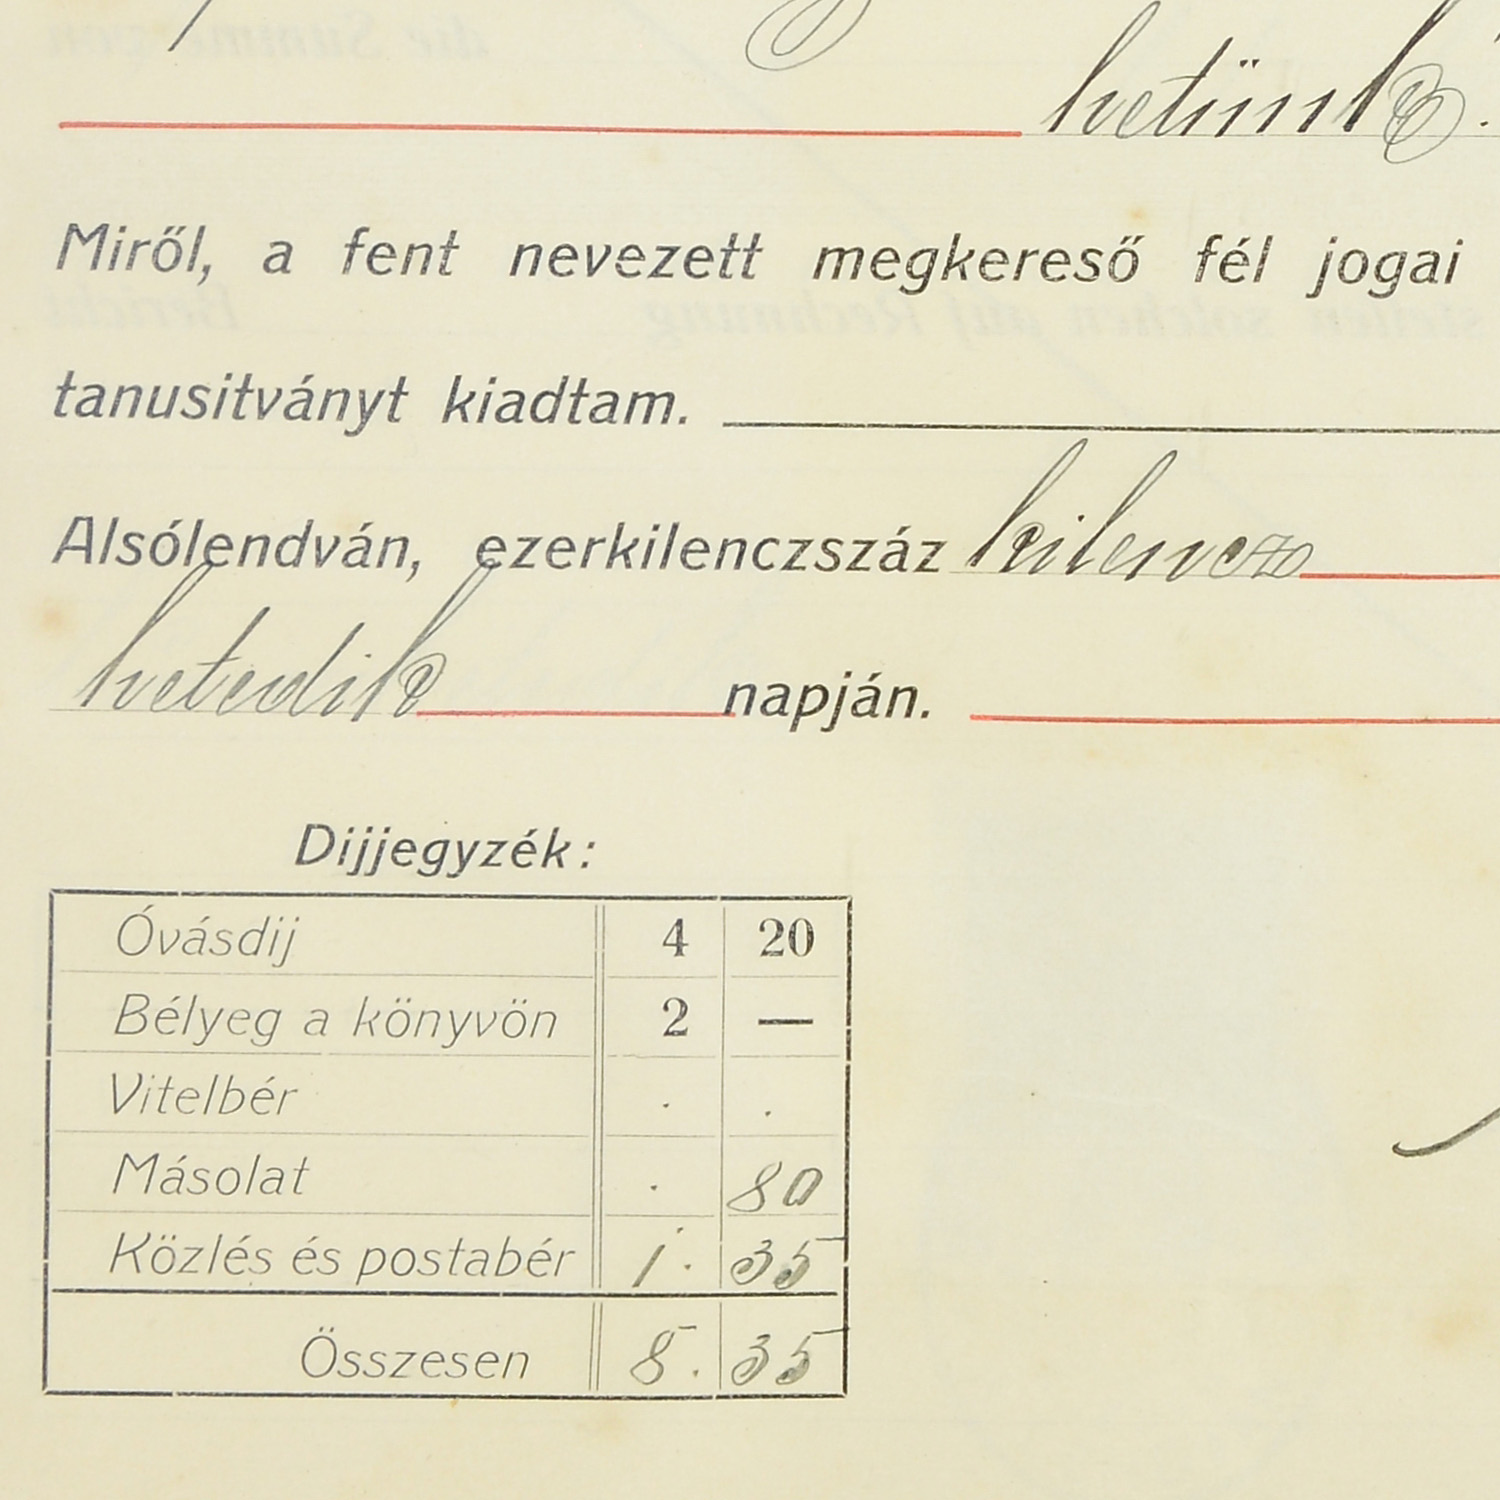 hetünk.
Miről, a fent nevezett megkereső fél jogai
tanusitványt kiadtam.
Alsólendván, ezerkilenczszáz kilencz
hetedik napján.
Dijjegyzék:
Óvásdij 4 20
Bélyeg a könyvön 2 —
Vitelbér . .
Másolat . 80
Közlés és postabér 1. 35
Összesen 8. 35